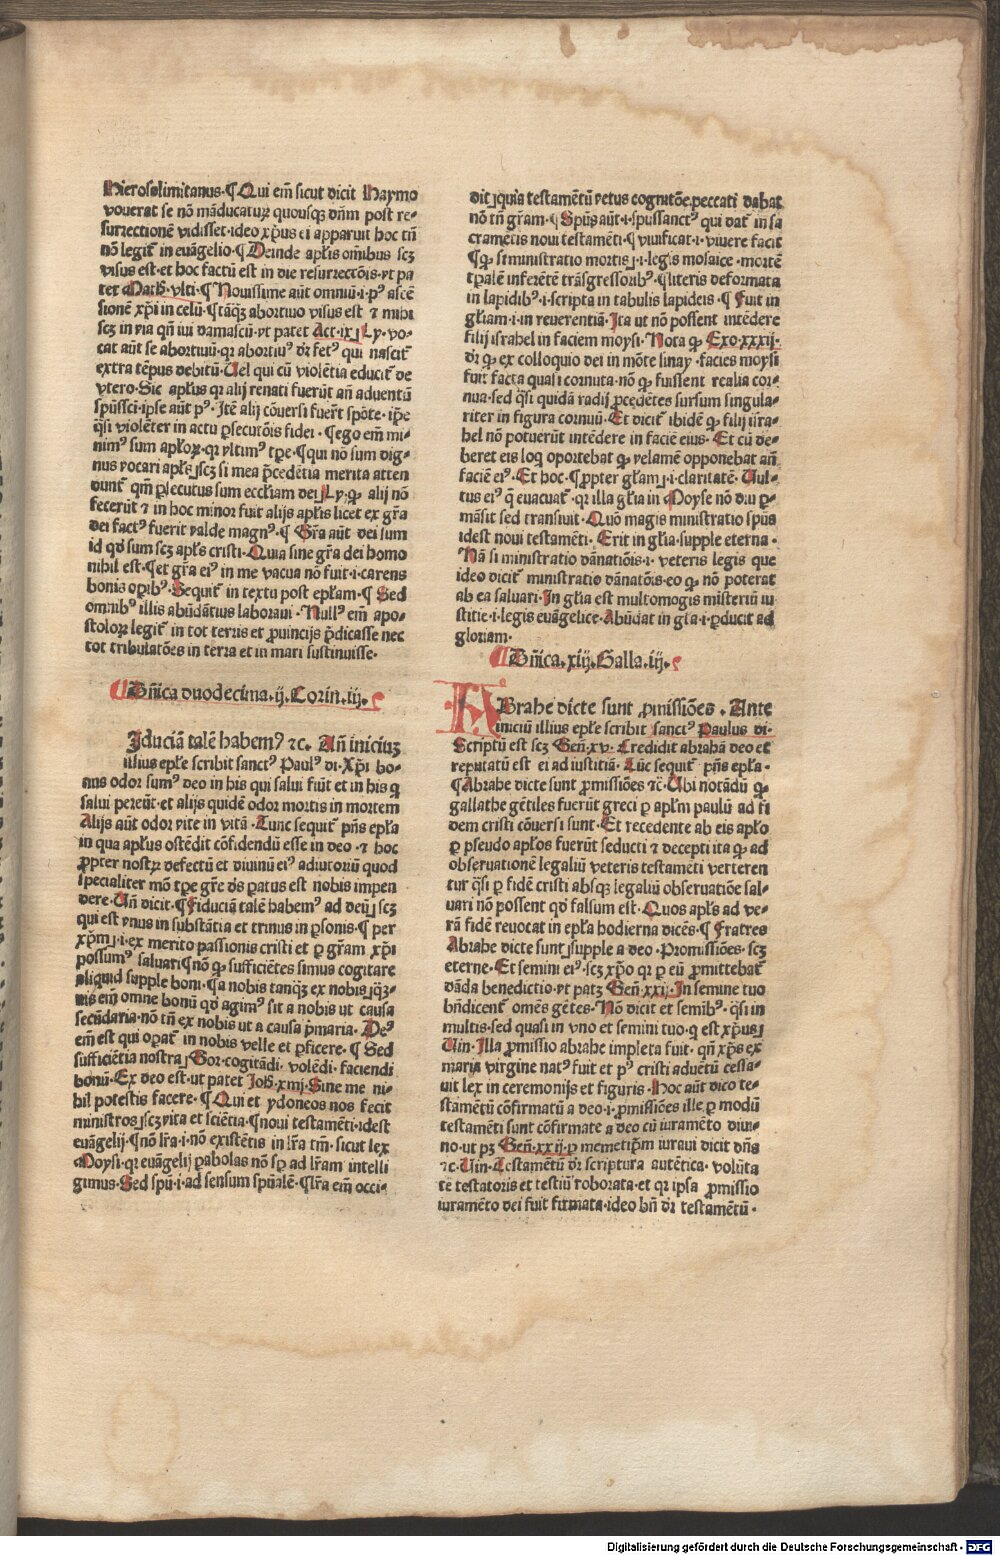 Hierosolimitanus·¶Qui em̃ sicut dicit Haymo
vouerat se nõ mãducaturꝫ quousqꝫ dñm post re⸗
surrectionẽ vidisset·ideo xp̃us ei apparuit hoc tñ
nõ legit᷑ in euãgelio·¶Deinde apl̃is om̃ibus scꝫ
visus est·et hoc factũ est in die resurrectõis·vt pa
tet Math̃·vlti·¶Nouissime aũt omniũ·i·pꝰ ascẽ
sionẽ xp̃i in celũ·¶tãqꝫ abortiuo visus est ⁊ mihi
scꝫ in via qñ iui damascũ·vt patet Act·ix·Ly·vo⸗
cat aũt se abortiuũ·qꝛ abortiuꝰ dr̃ fetꝰ qui nascit᷑
extra tẽpus debitũ·Uel qui cũ violẽtia educit᷑ de
vtero·Sic apl̃us qꝛ alij renati fuerũt añ aduentũ
sp̃ussci·ipse aũt pꝰ·Itẽ alij cõuersi fuer̃t spõte·ip̃e
q̃si violẽter in actu ꝑsecutõis fidei·¶ego em̃ mi⸗
nimꝰ sum apl̃oꝝ·qꝛ vltimꝰ tp̃e·¶qui nõ sum dig⸗
nus vocari apl̃s scꝫ si mea p̃cedẽtia merita atten
dunt᷑ qm̃ ꝑsecutus sum eccl̃iam dei Ly·qꝙ alij nõ
fecerũt ⁊ in hoc minor fuit alijs apl̃is licet ex gr̃a
dei factꝰ fuerit valde magnꝰ·¶Gr̃a aũt dei sum
id qd̓ sum scꝫ apl̃s cristi·Quia sine gr̃a dei homo
nihil est·¶et gr̃a eiꝰ in me vacua nõ fuit·i·carens
bonis oꝑibꝰ·Sequit᷑ in textu post epl̃am·¶Sed
omnibꝰ illis abũdãtius laboraui·Nullꝰ em̃ apo⸗
stoloꝝ legit᷑ in tot terris et ꝓuincijs p̃dicasse nec
tot tribulatões in terra et in mari sustinuisse·
¶Dñica duodecima·ij·Corin·iij·
Iduciã talẽ habemꝰ ⁊c·Añ iniciuꝫ
illius epl̃e scribit sanctꝰ Paulꝰ di·Xp̃i bo⸗
nus odor sumꝰ deo in his qui salui fiũt et in his q̃
salui pereũt·et alijs quidẽ odor mortis in mortem
Alijs aũt odor vite in vitã·Tunc sequit᷑ p̃ns epl̃a
in qua apl̃us ostẽdit cõfidendũ esse in deo·⁊ hoc
ꝓpter nostꝝ defectũ et diuinũ eiꝰ adiutoriũ quod
specialiter mõ tp̃e gr̃e dꝰs ꝑatus est nobis impen
dere·Uñ dicit·¶Fiduciã talẽ habemꝰ ad deũ scꝫ
qui est vnus in substãtia et trinus in ꝑsonis·¶per
xp̃m·i·ex merito passionis cristi et ꝑ gr̃am xp̃i
possumꝰ saluari¶nõ qꝙ sufficiẽtes simus cogitare
aliquid supple boni·¶a nobis tanqꝫ ex nobis qꝫ⸗
uis em̃ omne bonũ qd̓ agimꝰ sit a nobis ut causa
secũdaria·nõ tñ ex nobis ut a causa p̃maria·Deꝰ
em̃ est qui oꝑat᷑ in nobis velle et ꝑficere·¶Sed
sufficiẽtia nostra Gor·cogitãdi·volẽdi·faciendi
bonũ·Ex deo est·ut patet Joh̃·xv·Sine me ni⸗
hil potestis facere·¶Qui et ydoneos nos fecit
ministros scꝫ vita et sciẽtia·¶noui testamẽti·idest
euãgelij·¶nõ lr̃a·i·nõ existẽtis in lr̃a tm̃·sicut lex
Moysi·qꝛ euãgelij ꝑabolas nõ sꝑ ad lr̃am intelli
gimus·Sed sp̃u·i·ad sensum sp̃ualẽ·¶Lr̃a em̃ occi⸗
dit quia testamẽtũ vetus cognitõe peccati dabat
nõ tñ gr̃am·¶Sp̃us aũt·i·sp̃ussanctꝰ qui dat᷑ in sa
cramẽtis noui testamẽti·¶viuificat·i·viuere facit
¶Qꝙ si ministratio mortis·i·legis mosaice·mortẽ
tp̃alẽ inferẽtẽ trãsgressoribꝰ·¶literis deformata
in lapidibꝰ·i·scripta in tabulis lapideis·¶Fuit in
gl̃iam·i·in reuerentiã·Ita ut nõ possent intẽdere
filij israhel in faciem moysi·Nota qꝙ Exo·xxxij·
dr̃ qꝙ ex colloquio dei in mõte sinay·facies moysi
fuit facta quasi cornuta·nõ qꝙ fuissent realia cor⸗
nua·sed q̃si quidã radij ꝓcedẽtes sursum singula⸗
riter in figura cornuũ·Et dicit᷑ ibidẽ qꝙ filij isra⸗
hel nõ potuerũt intẽdere in faciẽ eius·Et cũ de⸗
beret eis loq̃ oportebat qꝙ velamẽ opponebat añ
faciẽ eiꝰ·Et hoc·¶ꝓpter gl̃am·i·claritatẽ·Uul⸗
tus eiꝰ q̃ euacuat᷑·qꝛ illa gl̃ia in Moyse nõ diu ꝑ⸗
mãsit sed transiuit·Quõ magis ministratio sp̃us
idest noui testamẽti·Erit in gl̃ia·supple eterna·
Nã si ministratio dãnatiõis·i·veteris legis que
ideo dicit᷑ ministratio dãnatõis·eo qꝙ nõ poterat
ab ea saluari·In gl̃ia est multomagis misteriũ iu
stitie·i·legis euãgelice·Abũdat in gl̃a·i·ꝑducit ad
gloriam·
¶Dñica·xiij·Galla·iij·
ABrahe dicte sunt ꝓmissiões·Ante
iniciũ illius epl̃e scribit sanctꝰ Paulus di·
Scriptũ est scꝫ Geñ·xv·Credidit abrahã deo et
reputatũ est ei ad iustitiã·Tũc sequit᷑ p̃ns epl̃a·
¶Abrahe dicte sunt ꝓmissiões ⁊c̃·Ubi notãdũ qꝙ
gallathe gẽtiles fuerũt greci ꝑ apl̃m paulũ ad fi
dem cristi cõuersi sunt·Et recedente ab eis apl̃o
ꝑ pseudo apl̃os fuerũt seducti ⁊ decepti ita qꝙ ad
obseruationẽ legaliũ veteris testamẽti verteren
tur q̃si ꝑ fidẽ cristi absqꝫ legaliũ obseruatiõe sal⸗
uari nõ possent qd̓ falsum est·Quos apl̃s ad ve⸗
rã fidẽ reuocat in epl̃a hodierna dicẽs·¶Fratres
Abrahe dicte sunt supple a deo·Promissiões·scꝫ
eterne·Et semini eiꝰ·scꝫ xp̃o qꝛ ꝑ eũ ꝓmittebat᷑
dãda benedictio·vt patꝫ Geñ·xxij·In semine tuo
bñdicent᷑ omẽs gẽtes·Nõ dicit et semĩbꝰ·q̃si in
multis·sed quasi in vno et semini tuo·q̃ est xp̃us
Uin·Illa ꝓmissio abrahe impleta fuit·qñ xp̃s ex
maria virgine natꝰ fuit et pꝰ cristi aduẽtũ cessa⸗
uit lex in ceremonijs et figuris·Hoc aũt dico te⸗
stamẽtũ cõfirmatũ a deo·i·ꝓmissiões ille ꝑ modũ
testamẽti sunt cõfirmate a deo cũ iuramẽto diui⸗
no·ut pꝫ Geñ·xxij·ꝑ memetip̃m iuraui dicit dñs
⁊c·Uin·Testamẽtũ dr̃ scriptura autẽtica·volũta
te testatoris et testiũ roborata·et qꝛ ipsa ꝓmissio
iuramẽto dei fuit firmata·ideo bñ dr̃ testamẽtũ·
Digitalisierung gefördert durch die Deutsche Forschungsgemeinschaft · DFG